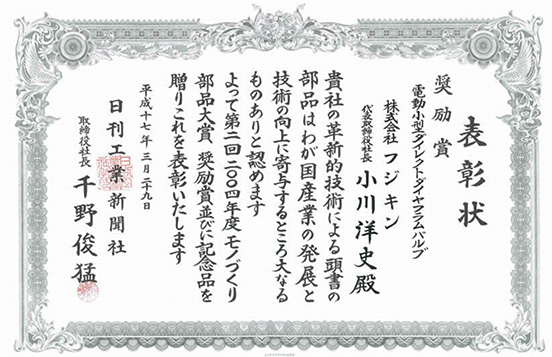 表彰状
奨励賞
電動小型ダイレクトダイヤフラムバルブ
株式会社 フジキン
代表取締役社長 小川洋史殿
貴社の革新的技術による頭書の
部品はわが国産業の発展と
技術の向上に寄与するところ大なる
ものありと認めます
よって第二回二〇〇四年度モノづくり
部品大賞、奨励賞並びに記念品を
贈りこれを表彰いたします
平成十七年三月二十九日
日刊工業新聞社
取締役社長 千野俊猛